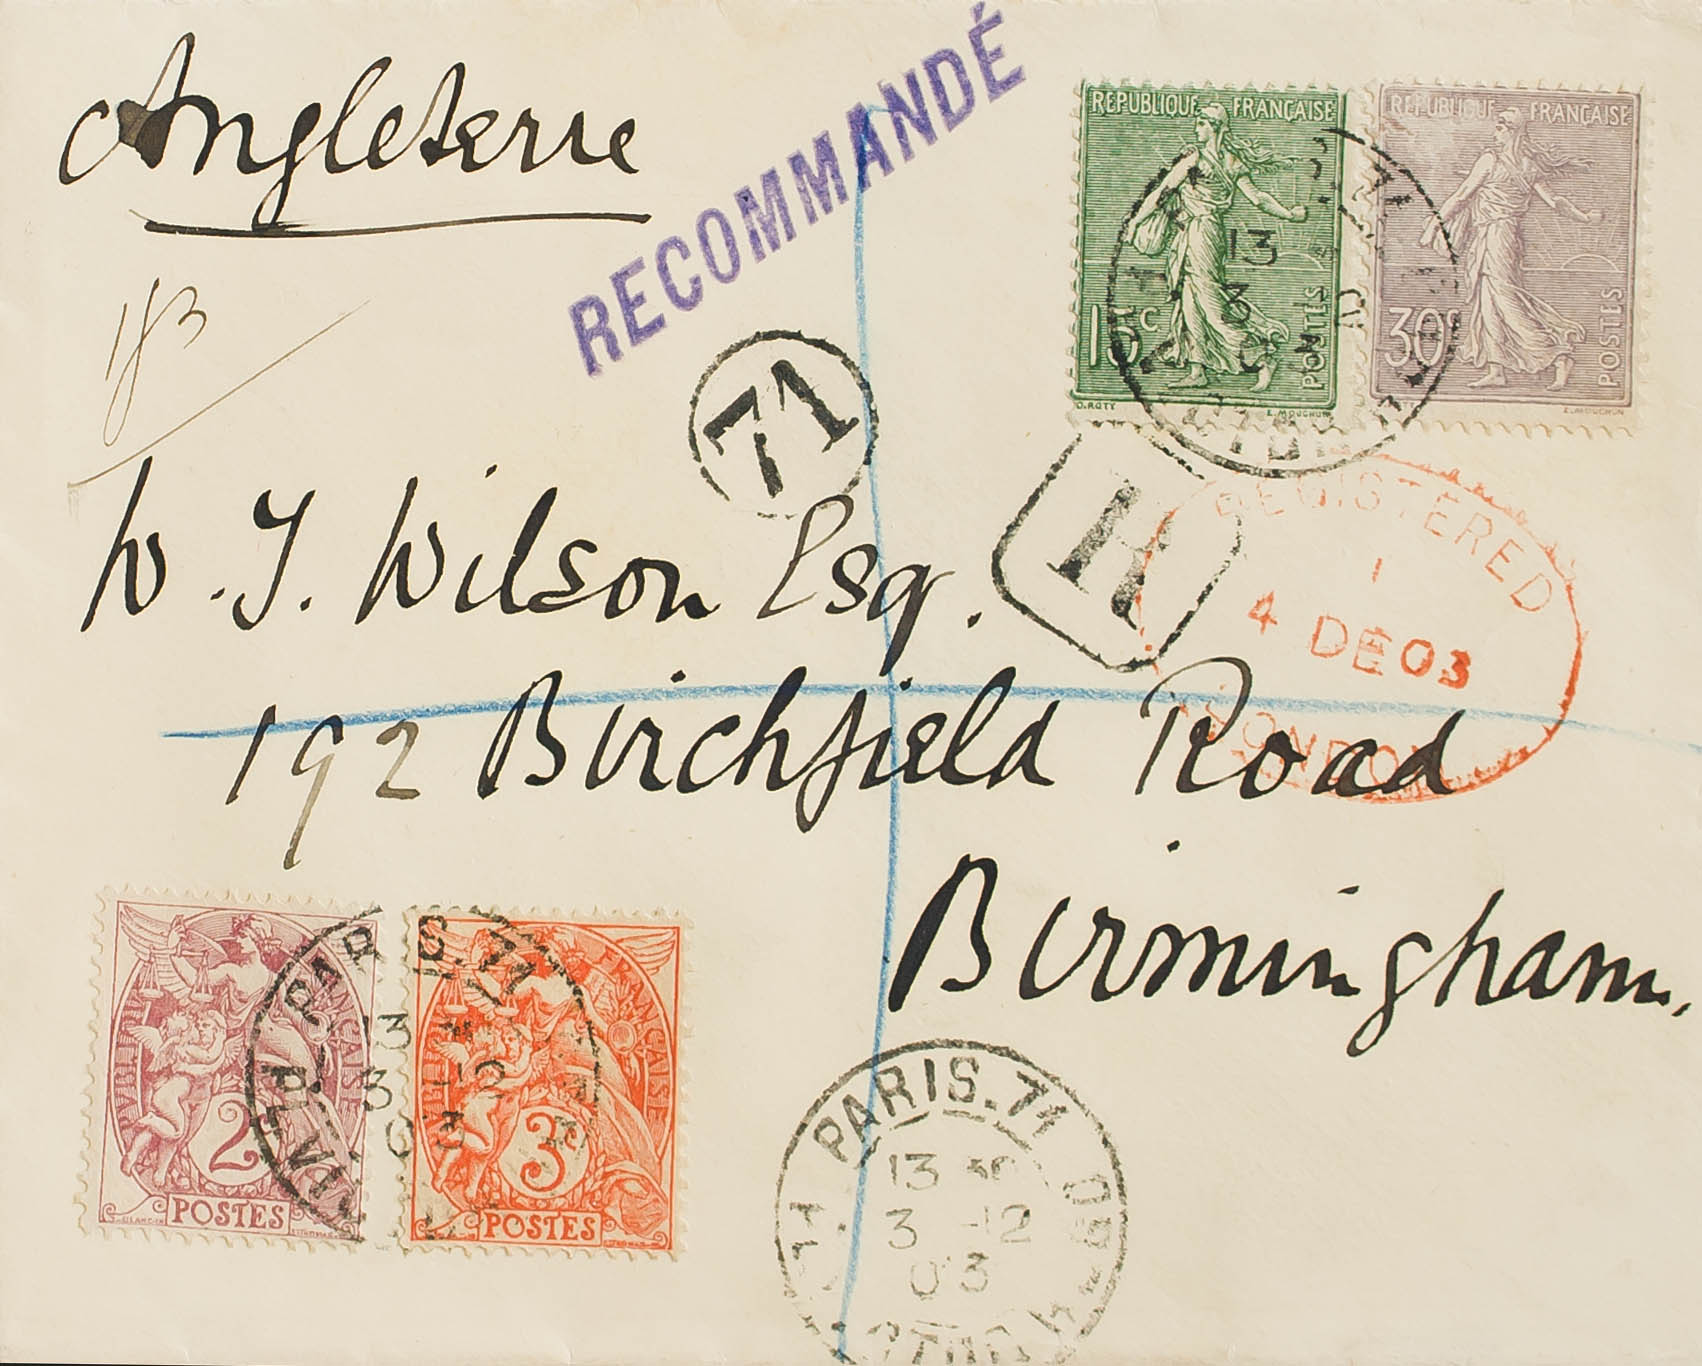 Angleterre
RECOMMANDÉ
REPUBLIQUE FRANÇAISE
15c
POSTES
O. ROTY
E. MOUCHON
REPUBLIQUE FRANÇAISE
30c
POSTES
E. MOUCHON
13
3
183
71
R
REGISTERED
1
4 DE 03
LONDON
W. J. Wilson Esq.
192 Birchfield Road
Birmingham.
PARIS. 71
13
3 -12
03
FRANÇAISE
2
POSTES
FRANÇAISE
3
POSTES
PARIS. 71
13
3 -12
03